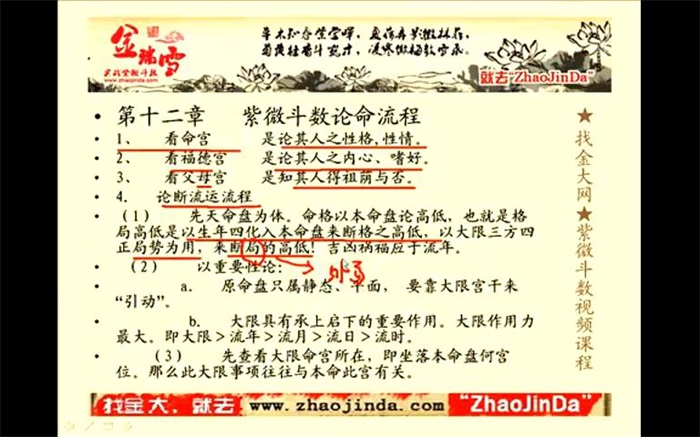 金瑞雪
www.zhaojinda.com
就去"ZhaoJinDa"
• 第十二章 紫微斗数论命流程
• 1、 看命宫 是论其人之性格，性情。
• 2、 看福德宫 是论其人之内心、嗜好。
• 3、 看父母宫 是知其人得祖荫与否。
• 4. 论断流运流程
• （1） 先天命盘为体。命格以本命盘论高低，也就是格
局高低是以生年四化入本命盘来断格之高低，以大限三方四
正局势为用，来断局的高低！吉凶祸福应于流年。
• （2） 以重要性论：
• a. 原命盘只属静态、平面， 要靠大限宫干来
“引动”。
• b. 大限具有承上启下的重要作用。大限作用力
最大。即大限＞流年＞流月＞流日＞流时。
• （3） 先查看大限命宫所在，即坐落本命盘何宫
位。那么此大限事项往往与本命此宫有关。
★找金大网★紫微斗数视频课程
找金大，就去 www.zhaojinda.com "ZhaoJinDa"